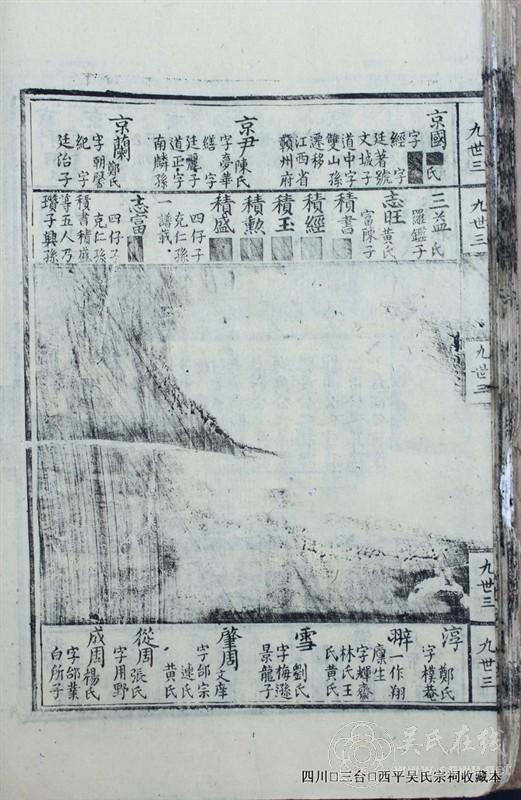 九世三
京國■氏
字■
經字
廷著號
文城子
道中字
雙山孫
遷移
江西省
贛州府
京尹陳氏
字夢華
繕字
廷
道正字
南麟孫
京蘭鄭氏
字朝
紀字
廷治子
九世三
三益氏
羅鑑子
志旺黃氏
富陳子
積書
積經
積玉
積勲
積盛
四仔子
克仁孫
一譜載
志富
四仔子
克仁孫
積書積盛
等五人乃
瓚子興孫
九世三
九世三
九世三
淳鄭氏
字樸菴
翀一作翔
廩生
字輝齋
林氏王
氏黃氏
雪劉氏
字梅
景龍子
肇周文庠
字邰宗
連氏
黃氏
從周張氏
字用野
成周楊氏
字邰業
白所子
吴氏在线
四川□三台□西平吴氏宗祠收藏本